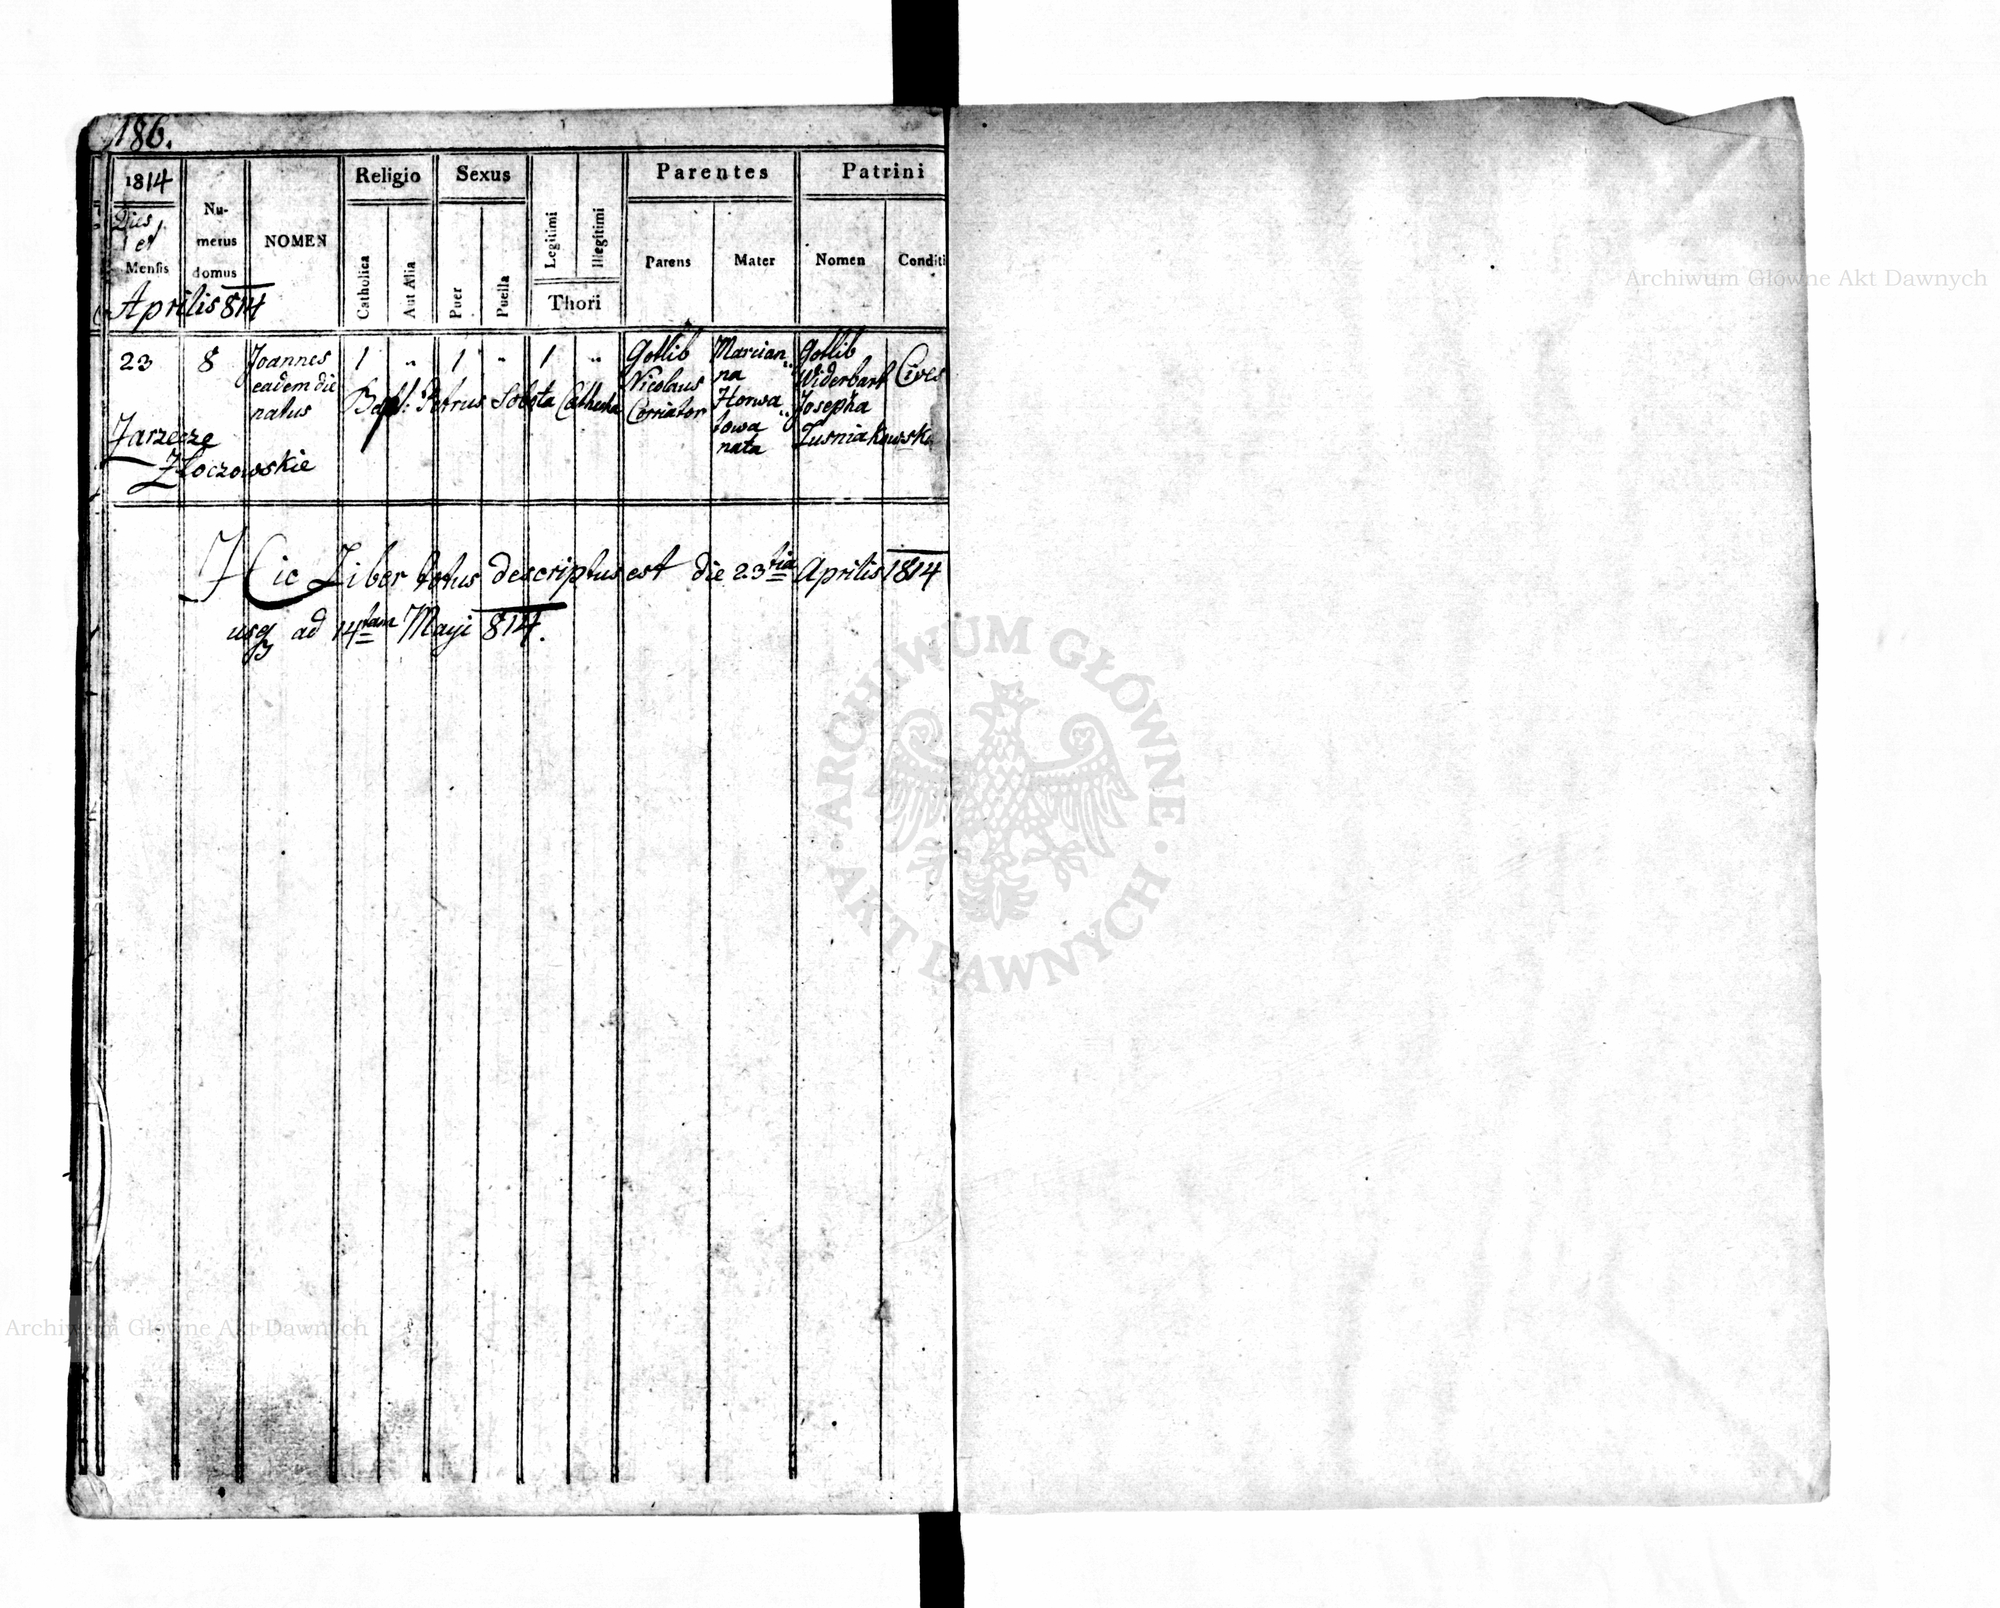 186.
1814
Dies
et
Mensis
Aprilis 814
Nu-
merus
domus
NOMEN
Religio
Catholica
Aut Alia
Sexus
Puer
Puella
Legitimi
Illegitimi
Thori
Parentes
Parens
Mater
Patrini
Nomen
Conditi
23
8
Joannes
eadem die
natus
1
"
1
"
1
"
Bapt: Petrus Sobota
Gotlib
Nicolaus
Marcian
na
Horwa
towa
nata
Gotlib
Widerbart
Josepha
Cives
Zarzecze
Złoczowskie
Hic Liber totus descriptus est die 23tia Aprilis 1814
usq ad 14tam Mayi 814.
ARCHIWUM GŁÓWNE
AKT DAWNYCH
Archiwum Główne Akt Dawnych
Archiwum Główne Akt Dawnych